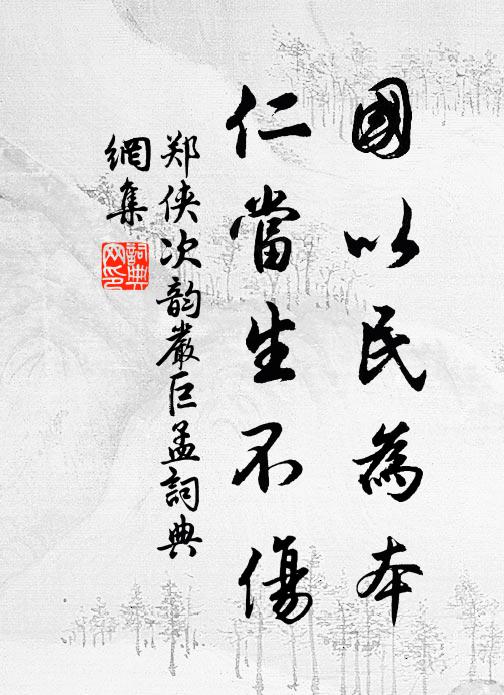 國以民為本
仁當生不傷
郑侠次韵嚴巨孟詞典
網集
詞典
网印